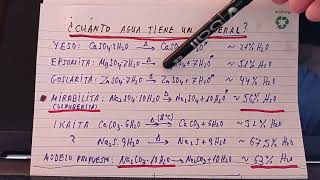 ¿CUÁNTO AGUA TIENE UN MINERAL?
YESO: CaSO₄·2H₂O —Δ→ CaSO₄ + 2H₂O ≈ 21% H₂O
EPSOMITA: MgSO₄·7H₂O → MgSO₄ + 7H₂O ≈ 51% H₂O
GOSLARITA: ZnSO₄·7H₂O → ZnSO₄ + 7H₂O ≈ 44% H₂O
MIRABILITA: Na₂SO₄·10H₂O —Δ→ Na₂SO₄ + 10H₂O ≈ 56% H₂O
(GLAUBERITA)
IKAITA: CaCO₃·6H₂O —Δ (8°C)→ CaCO₃ + 6H₂O ≈ 52% H₂O
? Na₂S·9H₂O —Δ→ Na₂S + 9H₂O ≈ 67,5% H₂O
MODELO PROPUESTO: Na₂CO₃·10H₂O → Na₂CO₃ + 10H₂O ≈ 63% H₂O